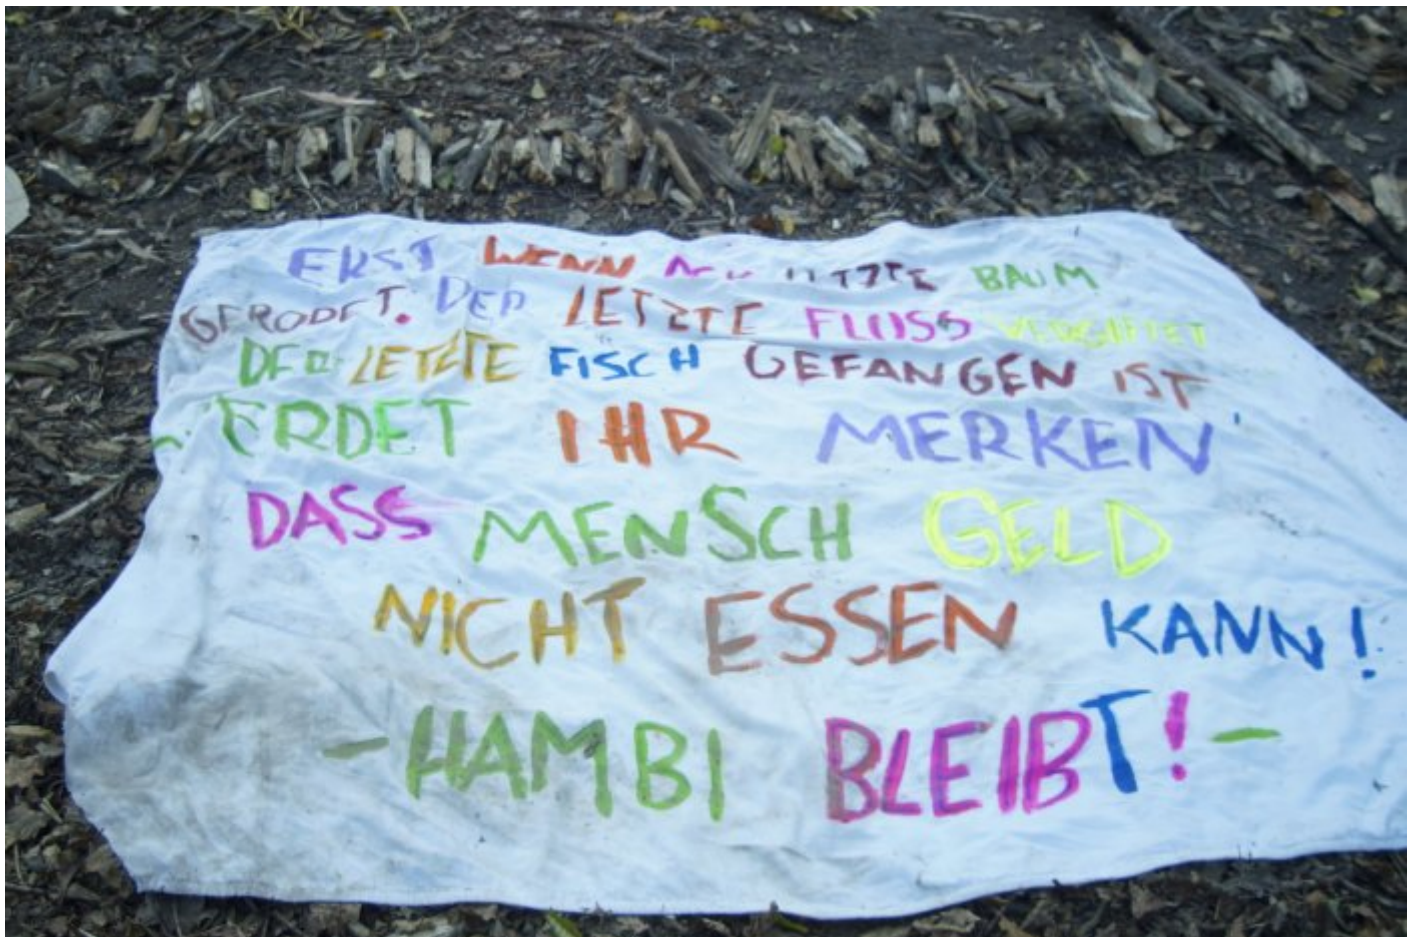 ERST WENN DER LETZTE BAUM
GERODET. DER LETZTE FLUSS VERGIFTET
DER LETZTE FISCH GEFANGEN IST
WERDET IHR MERKEN
DASS MENSCH GELD
NICHT ESSEN KANN!
-HAMBI BLEIBT!-